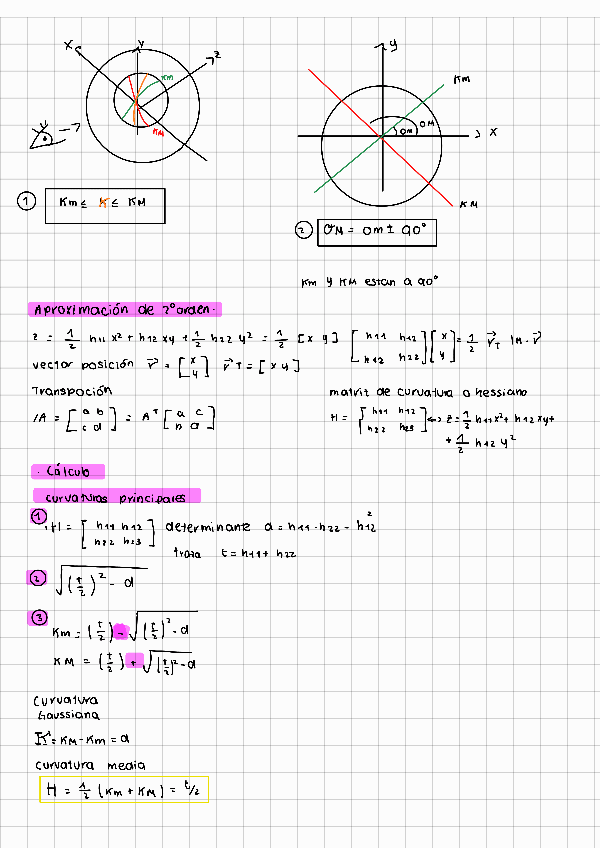 x y z
Km
KM
y
Km
θM
θm
x
KM
① Km ≤ K ≤ KM
② θM = θm ± 90°
Km y KM estan a 90°
Aproximación de 2º orden.
z = 1/2 h11 x² + h12 xy + 1/2 h22 y² = 1/2 [x y] [h11 h12 / h12 h22] [x / y] = 1/2 v⃗T IH · v⃗
vector posición v⃗ = [x / y] v⃗T = [x y]
Transpoción
matriz de curvatura o hessiano
IA = [a b / c d] = Aᵀ [a c / b d]
H = [h11 h12 / h22 h23] <-> z = 1/2 h11 x² + h12 xy + 1/2 h12 y²
. Cálculo
curvaturas principales
① IH = [h11 h12 / h22 h23] determinante d = h11 · h22 - h12²
traza t = h11 + h22
② √((t/2)² - d)
③ Km = (t/2) - √((t/2)² - d)
KM = (t/2) + √((t/2)² - d)
Curvatura
Gaussiana
K = KM - Km = d
Curvatura media
H = 1/2 (Km + KM) = t/2